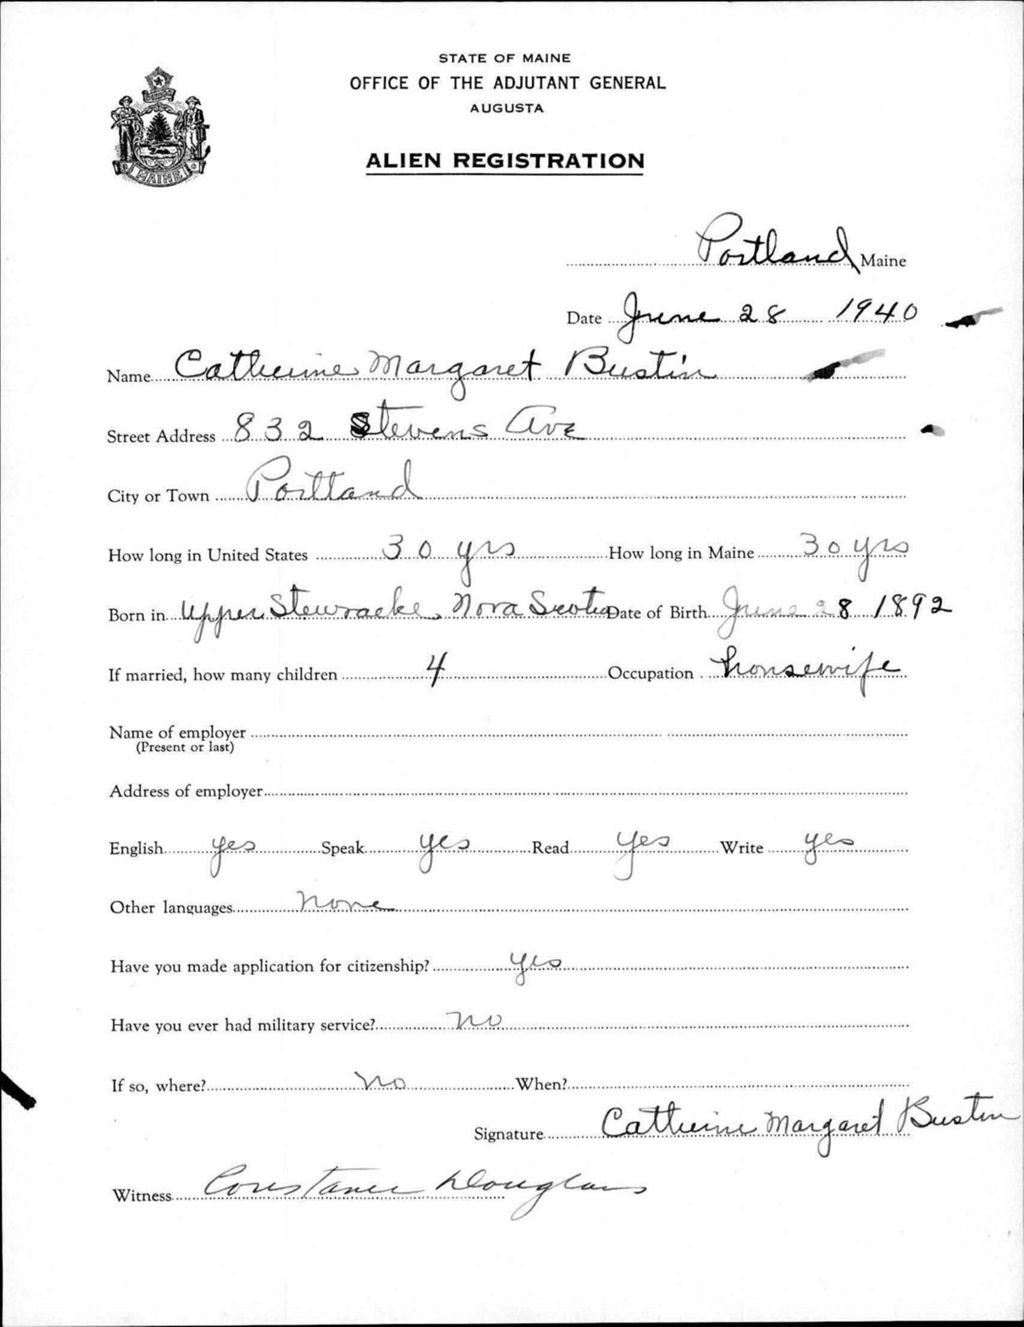 STATE OF MAINE
OFFICE OF THE ADJUTANT GENERAL
AUGUSTA
ALIEN REGISTRATION
MAINE
Portland Maine
Date June 28 1940
Name Catherine Margaret Bustin
Street Address 832 Stevens Ave
City or Town Portland
How long in United States 30 yrs How long in Maine 30 yrs
Born in Upper Stewracke, Nova Scotia Date of Birth June 28 1892
If married, how many children 4 Occupation housewife
Name of employer
(Present or last)
Address of employer
English yes Speak yes Read yes Write yes
Other languages none
Have you made application for citizenship? yes
Have you ever had military service? no
If so, where? no When?
Signature Catherine Margaret Bustin
Witness Constance Douglass